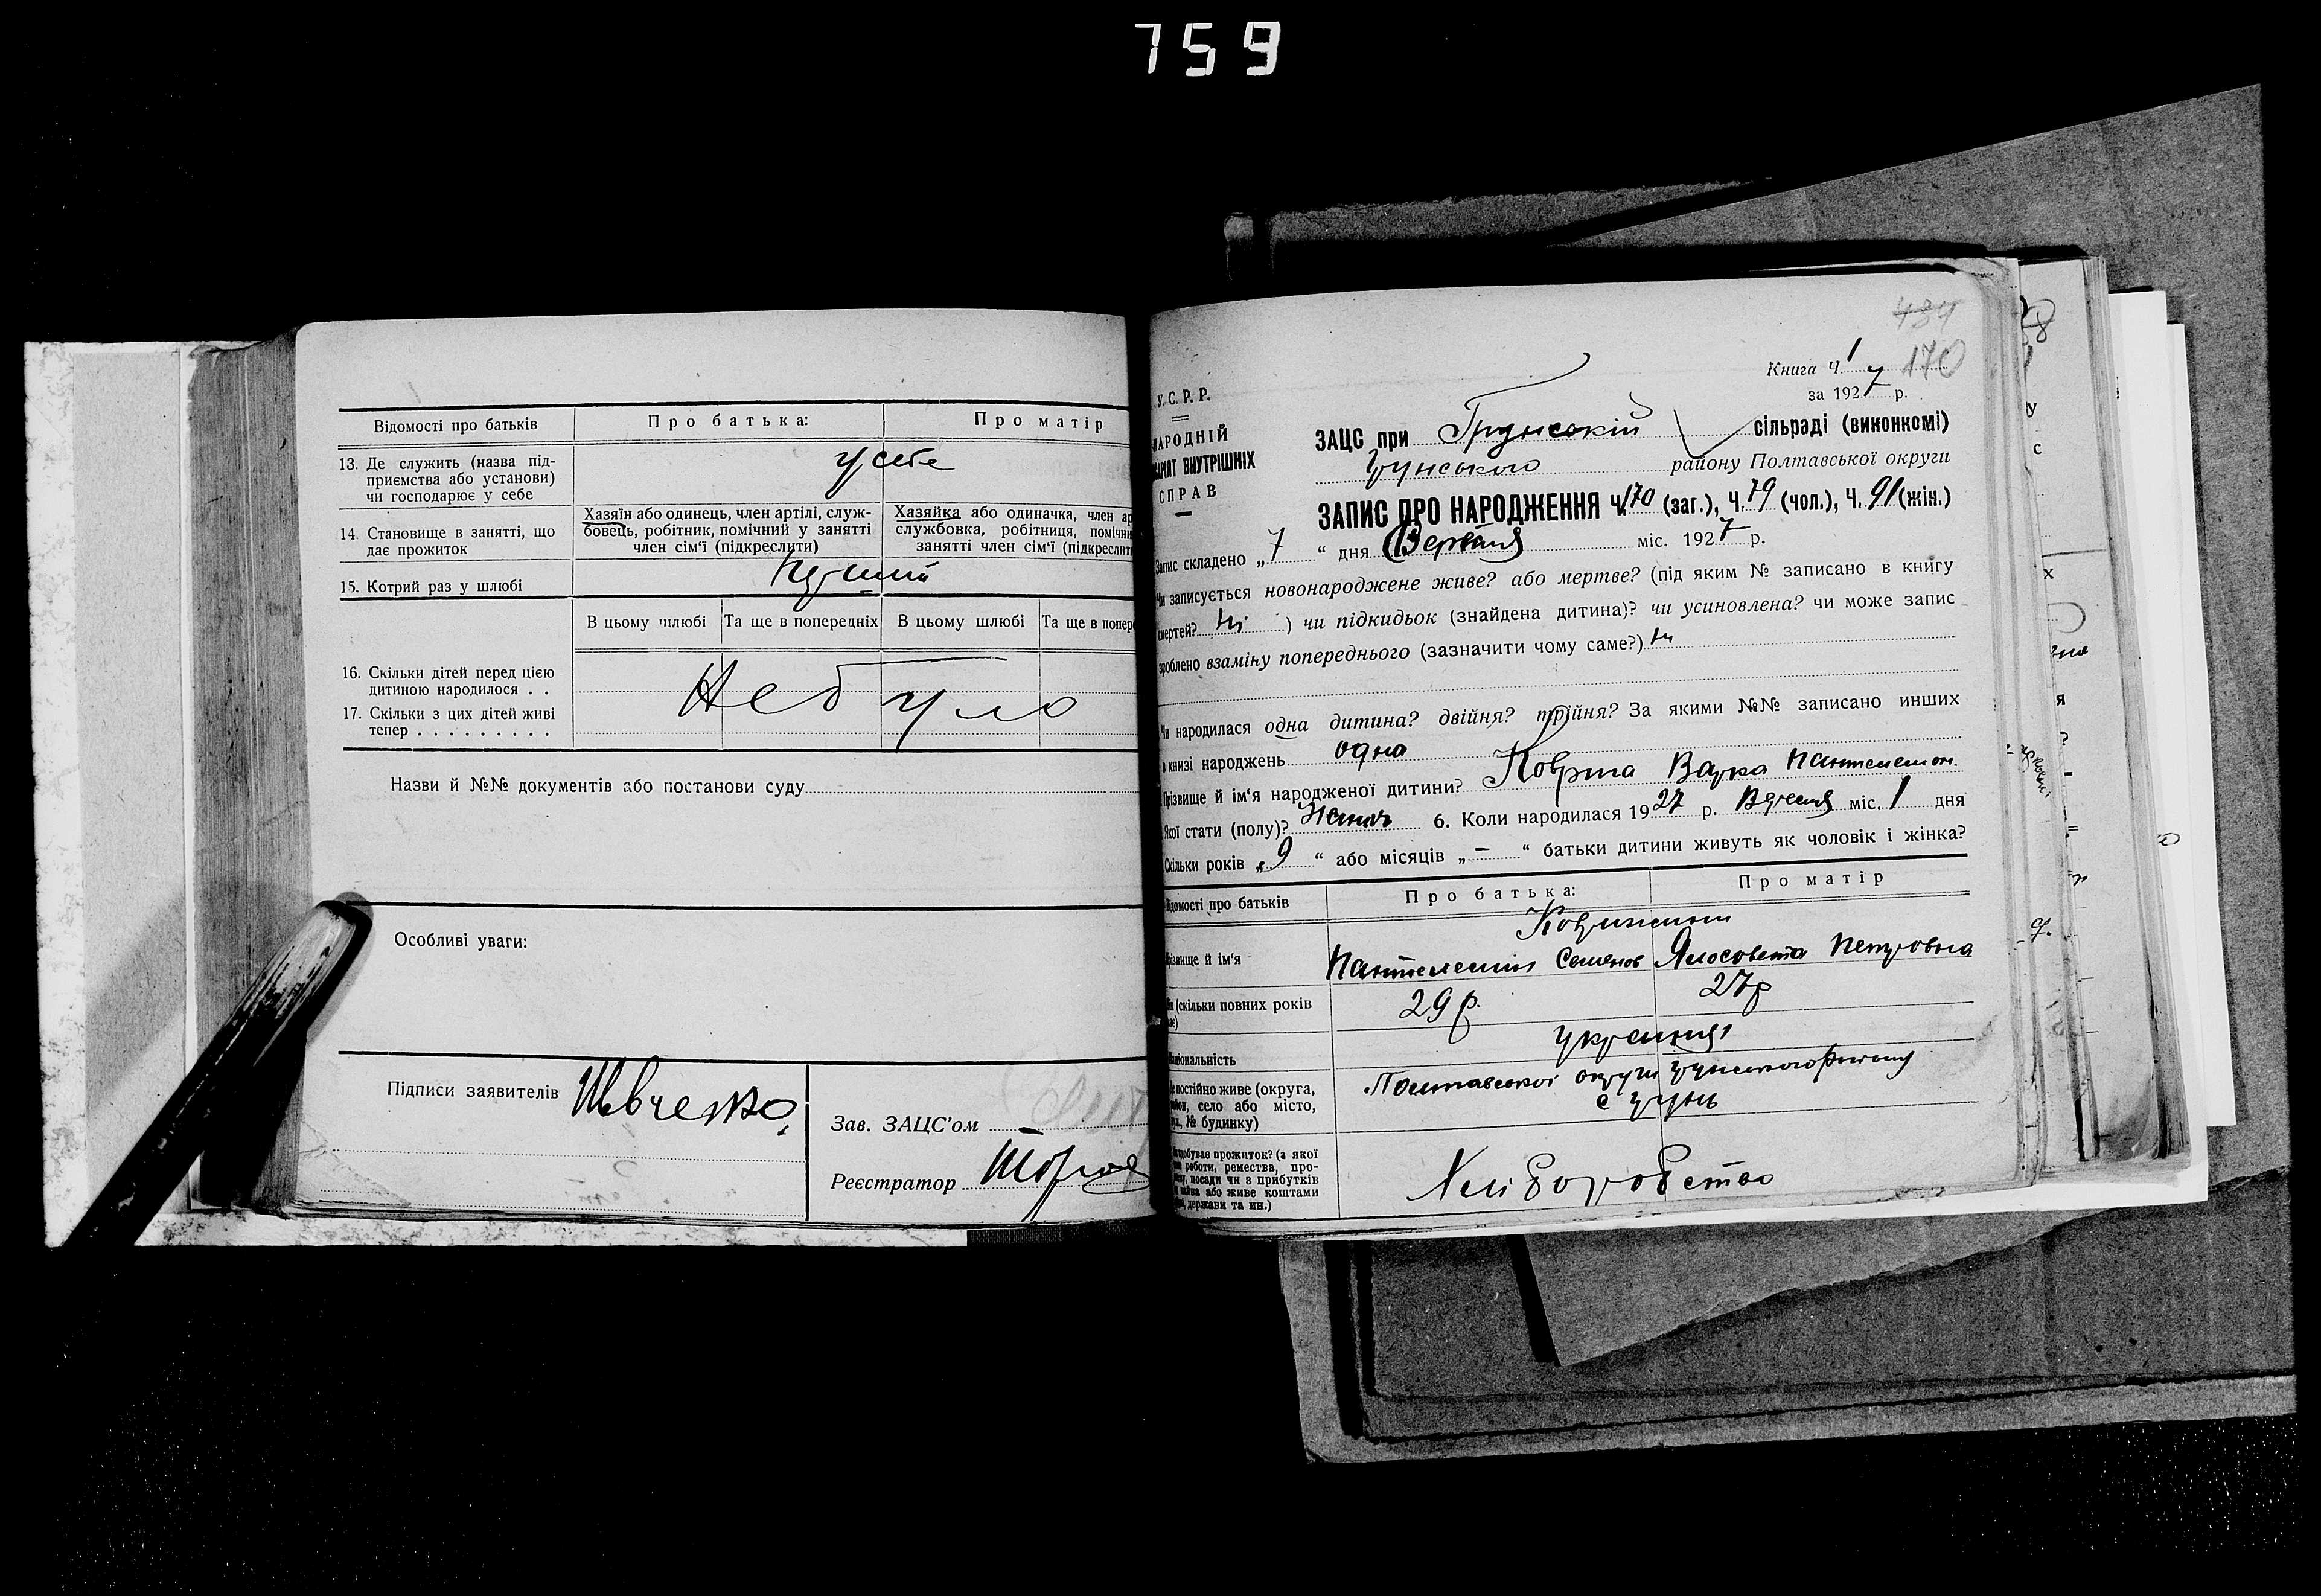 759
Відомості про батьків
Про батька:
Про матір
13. Де служить (назва під-
приємства або установи)
чи господарює у себе
у себе
14. Становище в занятті, що
дає прожиток
Хазяїн або одинець, член артілі, служ-
бовець, робітник, помічний у занятті
член сім'ї (підкреслити)
Хазяйка або одиначка, член ар
службовка, робітниця, помічни
занятті член сім'ї (підкреслити
15. Котрий раз у шлюбі
В цьому шлюбі
Та ще в попередніх
В цьому шлюбі
Та ще в попер
16. Скільки дітей перед цією
дитиною народилося . .
17. Скільки з цих дітей живі
тепер . . . . . . . . .
Не було
Назви й №№ документів або постанови суду
Особливі уваги:
Підписи заявителів Шевченко
Зав. ЗАЦС'ом
Реєстратор
434
170
Книга Ч. 1
за 1927 р.
У.С.Р.Р.
НАРОДНІЙ
АРІЯТ ВНУТРІШНІХ
СПРАВ
ЗАЦС при Грунській сільраді (виконкомі)
Грунського району Полтавської округи
ЗАПИС ПРО НАРОДЖЕННЯ Ч. 170 (заг.), Ч. 79 (чол.), Ч. 91 (жін.)
Запис складено „ 7 “ дня Вересня міс. 1927 р.
Чи записується новонароджене живе? або мертве? (під яким № записано в книгу
смертей? ні ) чи підкидьок (знайдена дитина)? чи усиновлена? чи може запис
зроблено взаміну попереднього (зазначити чому саме?) ні
Чи народилася одна дитина? двійня? трійня? За якими №№ записано инших
в книзі народжень одна
Прізвище й ім'я народженої дитини? Варка Пантелемон
Якої стати (полу)? 6. Коли народилася 1927 р. Вересня міс. 1 дня
Скільки років „ 9 “ або місяців „ – “ батьки дитини живуть як чоловік і жінка?
Відомості про батьків
Про батька:
Про матір
Прізвище й ім'я
Пантелемон Семенов
Ялосовета Петровна
(скільки повних років
29 р.
27 р
національність
українці
постійно живе (округа,
район, село або місто,
№ будинку)
Полтавської округи Грунського району
с Грунь
здобуває прожиток? (з якої
роботи, ремества, про-
посади чи з прибутків
або живе коштами
держави та ин.)
Хліборобство